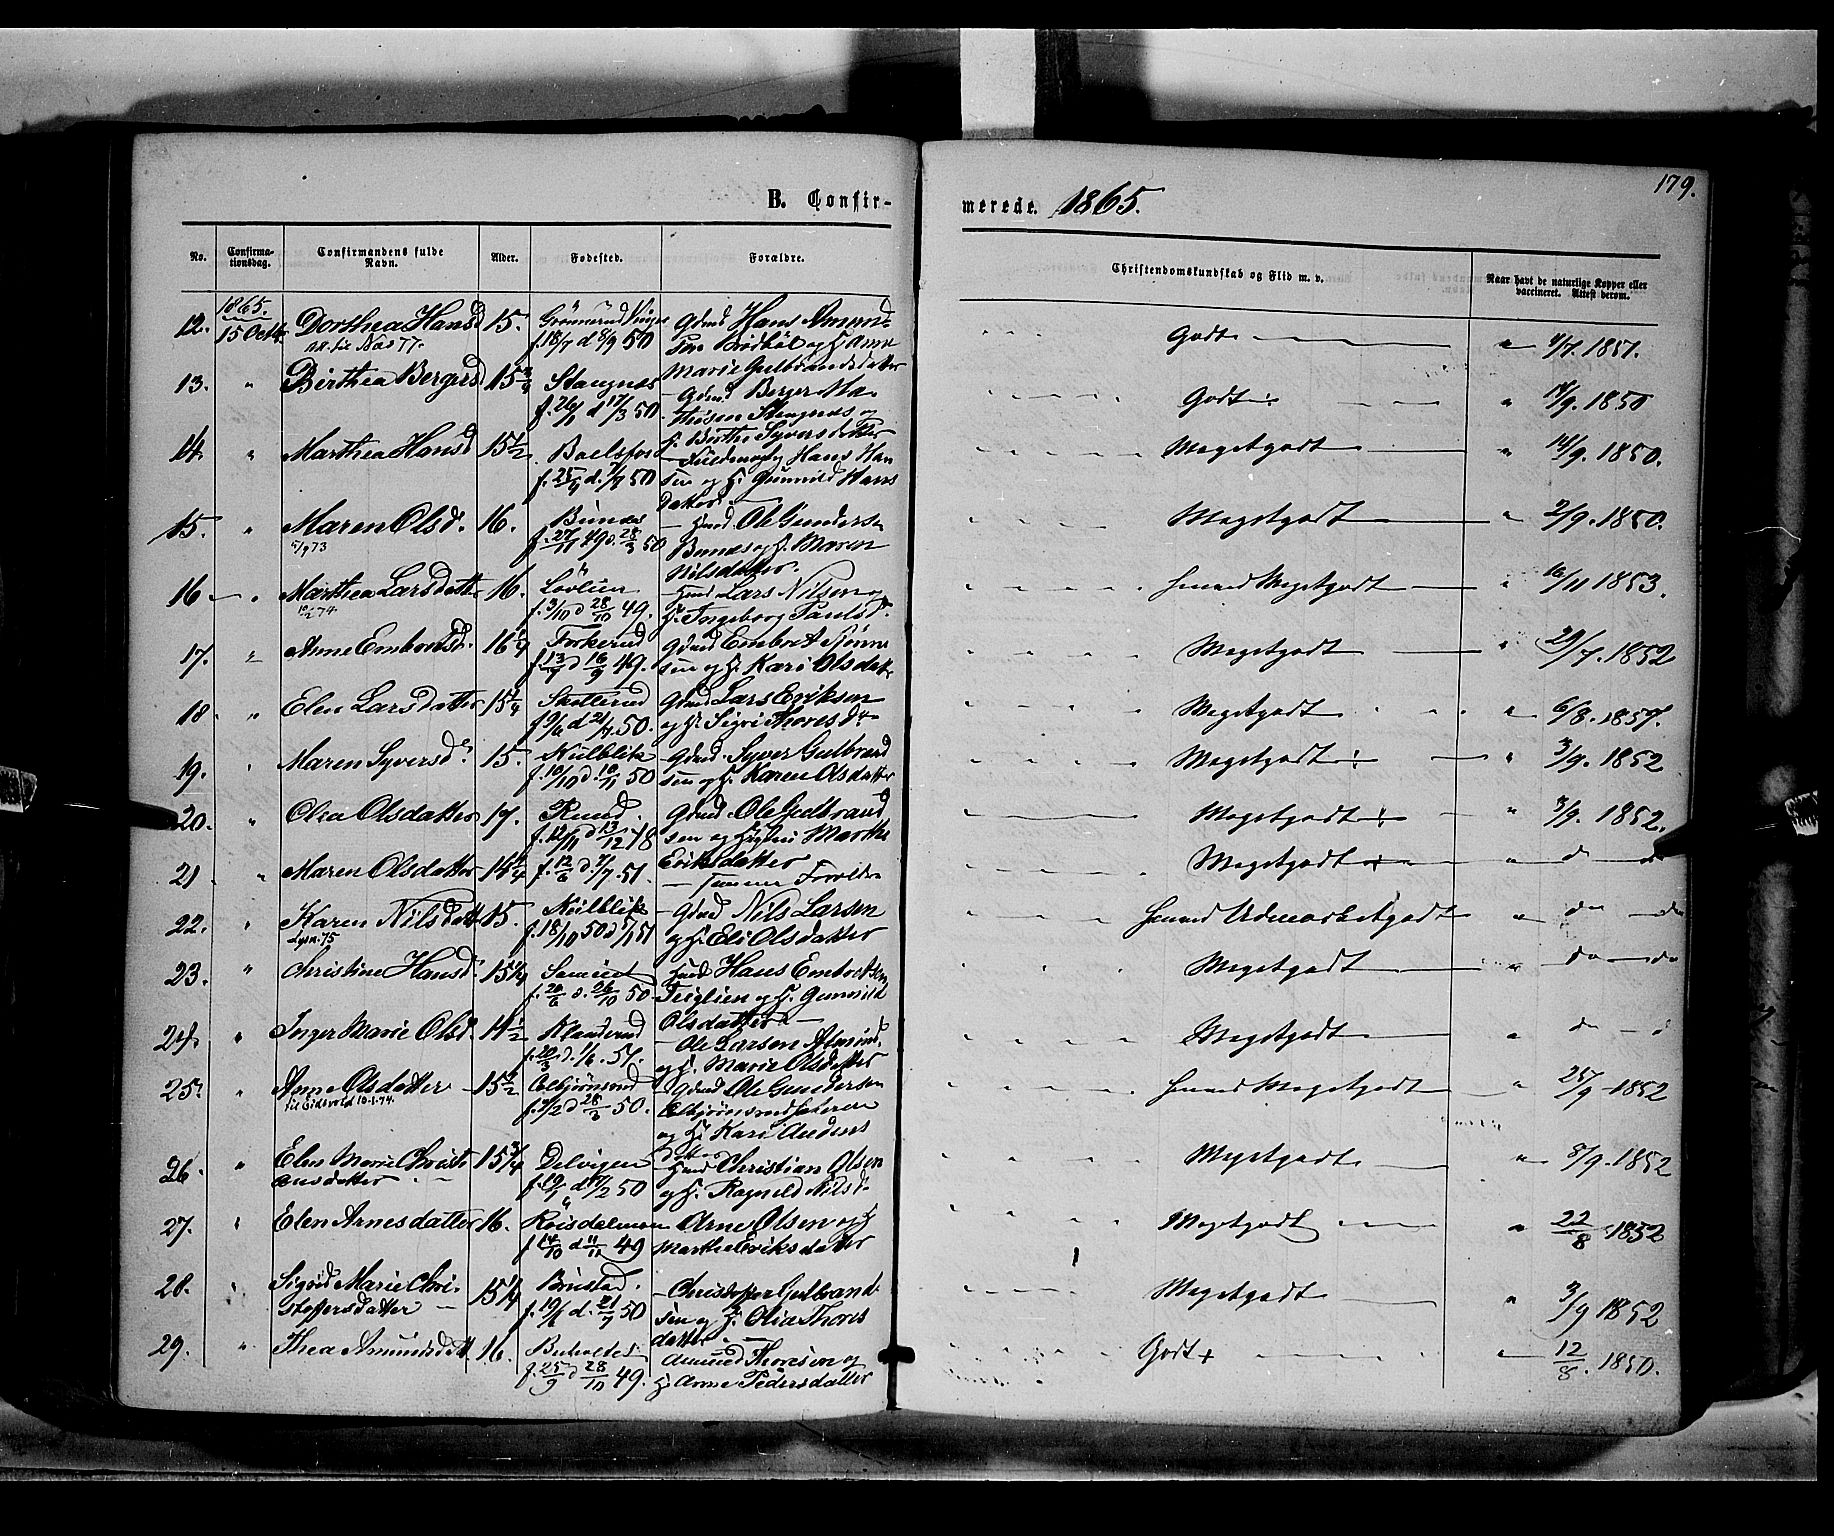 179.
B. Confirmerede. 1865.
No. Confirmationsdag. Confirmandens fulde Navn. Alder. Fødested. Forældre. Christendomskundskab og Flid m. v. Naar havt de naturlige Kopper eller vaccineret. Attest derom.
1865.
12. 15 Octb. Dorthea Hansd 15. Grönnerud Vinger f. 18/7 d 8/9 50 Gdmd Hans Amundsen Brödböl og H. Anne Marie Gulbrandsdatter Godt " 9/7. 1851.
13. " Birthea Bergersd 15 3/4 Stangnæs f. 26/1 d 17/3 50. Gdmd Berger Mathisen Stangnæs og H. Birthe Syversdatter Godt " 14/9. 1850
14. " Marthea Hansd 15 1/2 Hans Hansen og H. Gunnild Hansdatter. Megetgodt " 14/9. 1850.
15. " Maren Olsd. 16. Bunæs f. 27/11 49 d. 28/3 50 Ole Gundersen Bunæs og H. Maren Nilsdatter. Megetgodt " 2/9. 1850.
5/9 73
16 " Marthea Larsdatter 16. f. 3/10 d 28/10 49. Lars Nilsen og H. Ingeborg Paulsd. Megetgodt " 16/11 1853.
17. " Anne Embretsd. 16 1/4 Torkerud f. 13/7 d 16/9 49. Gdmd Embret og H. Kari Olsdatter Megetgodt " 29/7. 1852
18 " Elen Larsdatter 15 1/4 Skotterud f 9/6 d 21/7 50. Gdmd Lars Eriksen og H. Sigri Thoresd Megetgodt " 6/8. 1857.
19. " Maren Syversd. 15. Kulblik f. 10/10 d. 10/11 50 Gdmd Syver Gulbrandsen og H. Karen Olsdatter Megetgodt " 3/9. 1852
20. " Olia Olsdatter 17. Rund. f. 12/11 d 13/12 48 Gdmd. Ole Gulbrandsen og Hustru Marthe Eriksdatter Megetgodt " 3/9. 1852.
21 " Maren Olsdatter 14 1/4 f. 12/6 d. 7/7. 51. samme Forældre Megetgodt " do do
22. " Karen Nilsdatt 15. Kulblik f. 18/10 50 d 5/1 51 Gdmd Nils Larsen og H. Eli Olsdatter Udmærketgodt " do do
23. " Christine Hansd 15 1/4 f. 20/6 d. 26/10 50 Hans Embretsen Teiglien og H. Gunnild Olsdatter Megetgodt " do do
24. " Inger Marie Olsd. 14 1/2 Klanderud f. 20/3 d. 1/6. 51. Ole Larsen og H. Marie Olsdatter Megetgodt " do d
25. " Anne Olsdatter 15 1/2 Asbjörnsrud d 28/3 50. Gdmd Ole Gundersen og H. Kari Andersdatter Megetgodt " 25/9 1852
til Eidsvold 10-1-74.
26. " Elen Marie Christiansdatter 15 3/4 Delvigen 50 Christian Olsen og H. Ragnild Nilsd Megetgodt " 8/9. 1852
27. " Elen Arnesdatter 16. Röisdalmoen f 14/10 d 11/11 49 Arne Olsen og H Marthe Eriksdatter Megetgodt " 22/8. 1852
28. " Sigrid Marie Christoffersdatter 15 1/4 Brustad. f. 19/6 d. 21/7 50 Christoffer Gulbrandsen og H. Olia Thoresdatter Megetgodt " 3/9 1852
29. " Thea Amundsdatt. 16. f. 25/9 d 28/10 49. Amund Thoresen og H. Anne Pedersdatter Godt " 12/8. 1850.